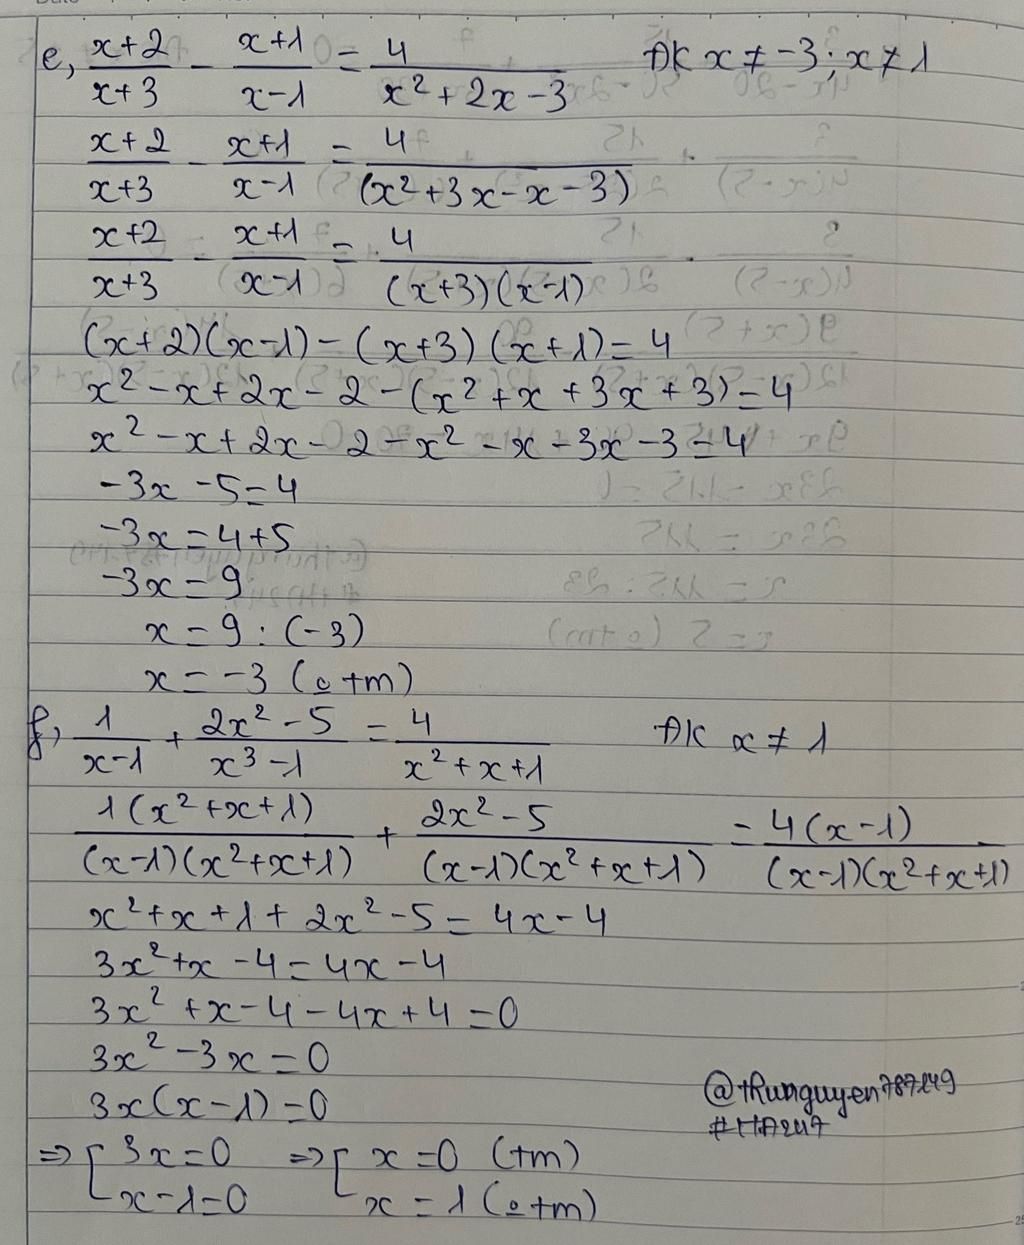 e, (x+2)/(x+3) - (x+1)/(x-1) = 4/(x²+2x-3) ĐK x ≠ -3; x ≠ 1
(x+2)/(x+3) - (x+1)/(x-1) = 4/(x²+3x-x-3)
(x+2)/(x+3) - (x+1)/(x-1) = 4/((x+3)(x-1))
(x+2)(x-1) - (x+3)(x+1) = 4
x² - x + 2x - 2 - (x² + x + 3x + 3) = 4
x² - x + 2x - 2 - x² - x - 3x - 3 = 4
-3x - 5 = 4
-3x = 4+5
-3x = 9
x = 9 : (-3)
x = -3 (o tm)
f, 1/(x-1) + (2x²-5)/(x³-1) = 4/(x²+x+1) ĐK x ≠ 1
1(x²+x+1)/((x-1)(x²+x+1)) + (2x²-5)/((x-1)(x²+x+1)) = 4(x-1)/((x-1)(x²+x+1))
x²+x+1+2x²-5 = 4x-4
3x²+x-4 = 4x-4
3x²+x-4-4x+4 = 0
3x²-3x = 0
3x(x-1) = 0
@thunguyen787249
#HA247
=> [ 3x=0 => [ x=0 (tm)
x-1=0 x=1 (o tm)